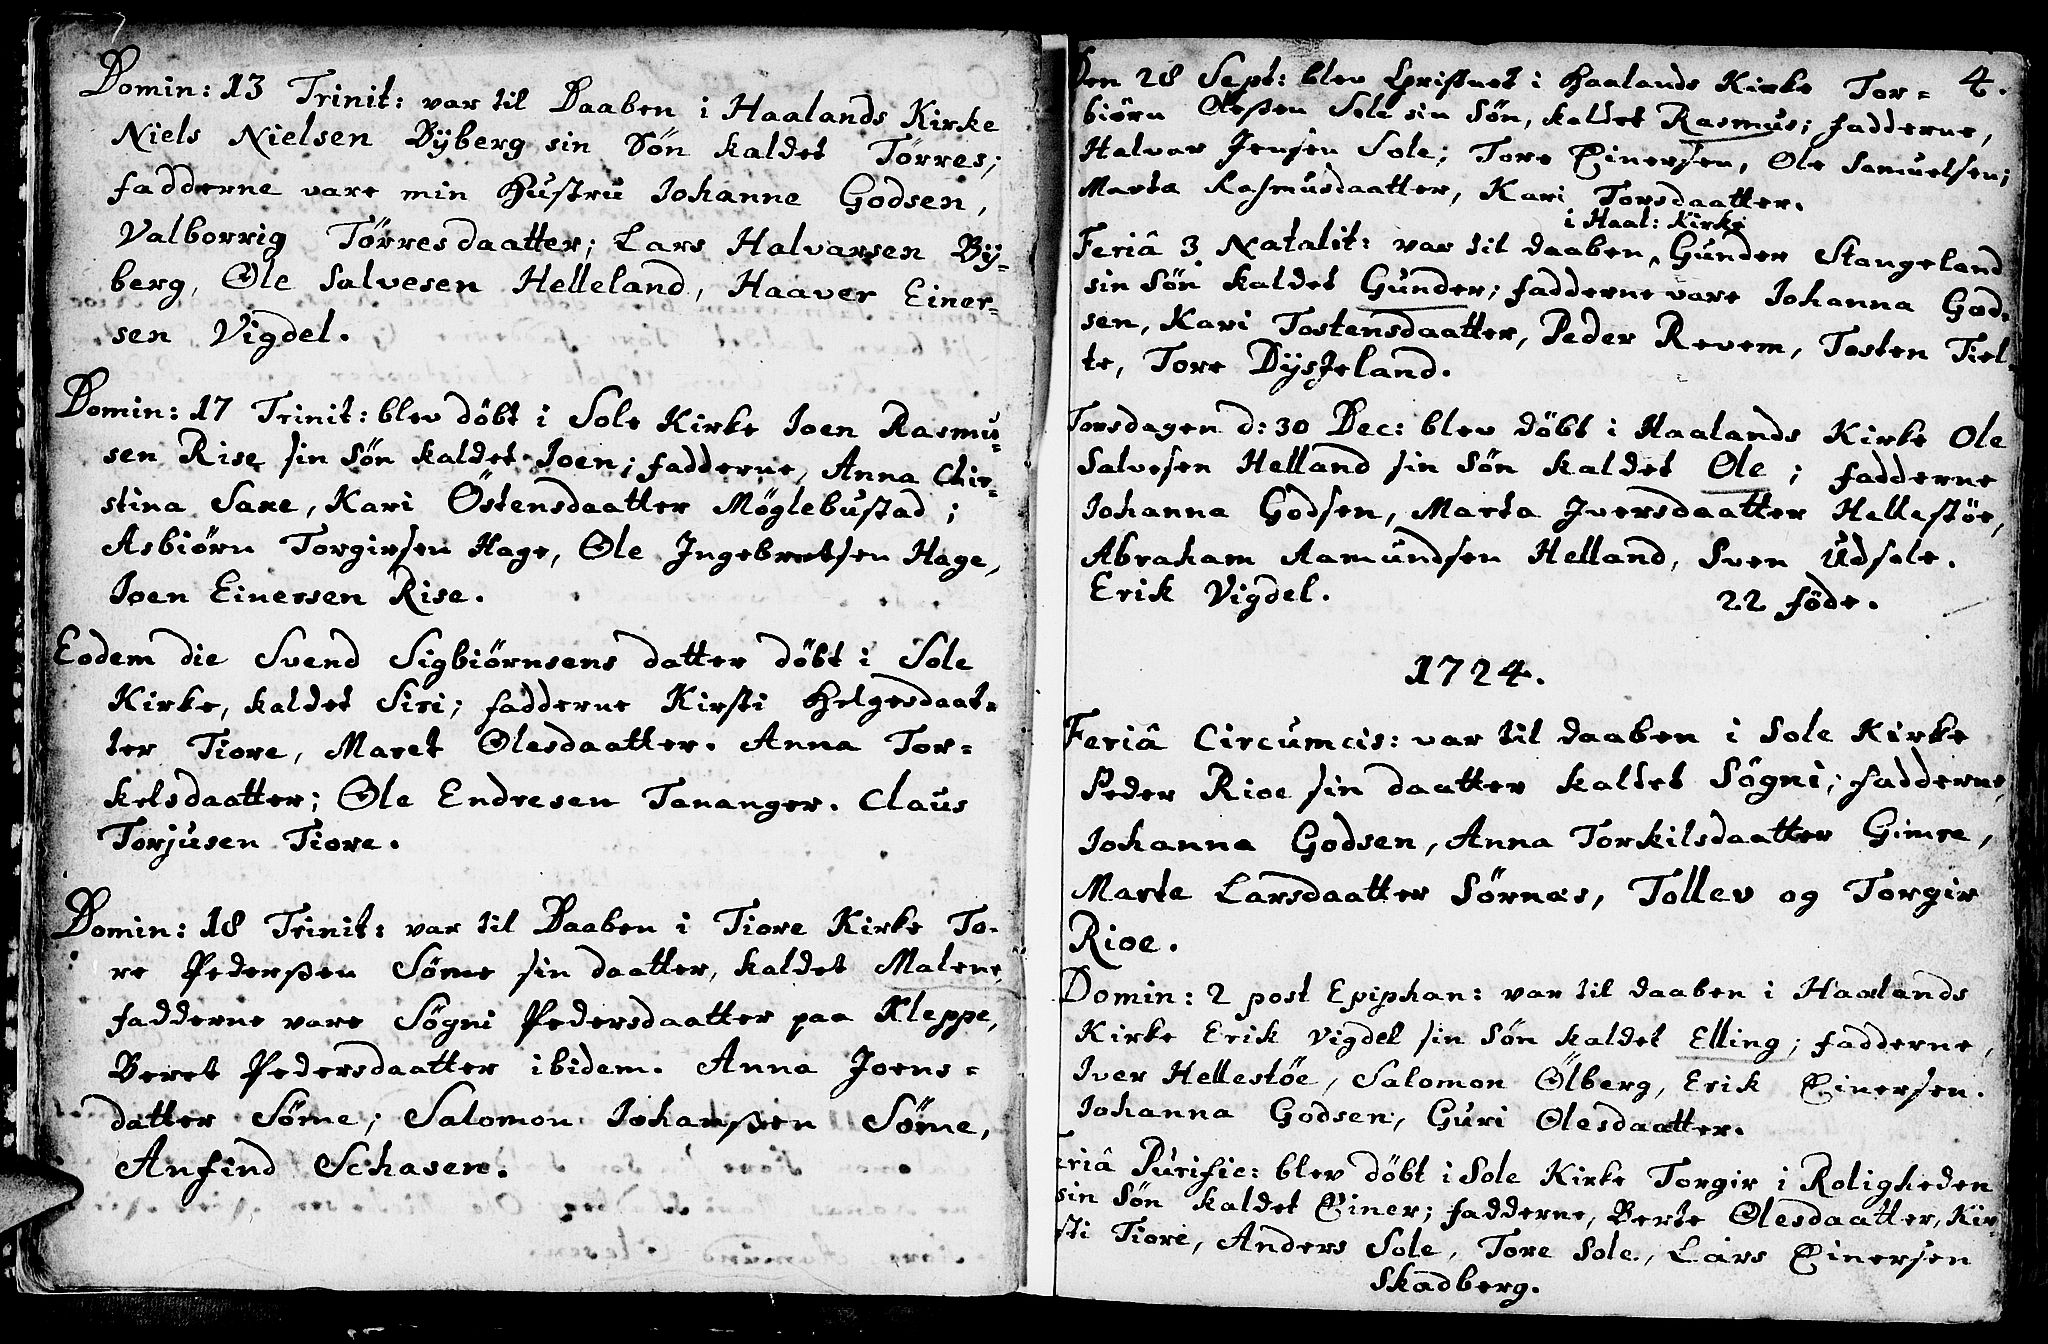 Domin: 13 Trinit: var til Daaben i Haalands Kirke
Niels Nielsen Bÿberg sin Sön kaldet Törres;
fadderne vare min Hustru Johanne Godsen,
Valborrig Törresdaatter; Lars Halvarsen Bÿ-
berg, Ole Salvesen Helleland, Haaver Einer-
sen Vigdel.
Domin: 17 Trinit: blev döbt i Sole Kirke Joen Rasmu-
sen Rise sin Sön kaldet Joen; fadderne, Anna Chir-
stina Saxe, Kari Östensdaatter Möglebustad;
Asbiörn Torgirsen Hage, Ole Ingebretsen Hage,
Joen Einersen Rise.
Eodem die Svend Sigbiörnsens datter döbt i Sole
Kirke, kaldet Siri; fadderne Kirsti Helgesdaat-
ter Tiore, Maret Olesdaatter. Anna Tor-
kelsdaatter; Ole Endresen Tananger. Claus
Torjusen Tiore.
Domin: 18 Trinit: var til Daaben i Tiore Kirke To-
re Pederßen Söme sin daatter, kaldet Malene
fadderne vare Sögni Pedersdaatter paa Kleppe,
Beret Pedersdaatter ibidem. Anna Joens-
datter Söme; Salomon Johanßen Söme,
Anfind Schasen.
4.
Den 28 Sept: blev Christnet i Haalands Kirke Tor-
biörn Oleßen Sole sin Sön, kaldet Rasmus; fadderne,
Halvar Jensen Sole; Tore Einersen, Ole Samuelsen;
Marta Rasmusdaatter, Kari Torsdaatter.
i Haal: Kirke
Feriâ 3 Natalit: var til daaben, Gunder Stangeland
sin Sön kaldet Gunder; fadderne vare Johanna God-
sen, Kari Tostensdaatter, Peder Revem, Tosten Tiel-
te, Tore Dÿsjeland.
Torsdagen d: 30 Dec: blev döbt i Haalands Kirke Ole
Salvesen Helland sin Sön kaldet Ole; fadderne
Johanna Godsen, Marta Iversdaatter Hellestöe,
Abraham Aamundsen Helland, Sven Udsole.
Erik Vigdel. 22 föde.
1724.
Feriâ Circumcis: var til daaben i Sole Kirke
Peder Rioe sin daatter kaldet Sögni; fadderne,
Johanna Godsen, Anna Torkilsdaatter Gimre,
Marte Larsdaatter Sörnæs, Tollev og Torgir
Rioe.
Domin: 2 post Epiphan: var til daaben i Haalands
Kirke Erik Vigdel sin Sön kaldet Elling; fadderne,
Iver Hellestöe, Salomon Ölberg, Erik Einersen.
Johanna Godsen, Guri Olesdaatter.
eriâ Purific: blev döbt i Sole Kirke Torgir i Roligheden
sin Sön kaldet Einer; fadderne, Berte Olesdaatter, Kir-
sti Tiore, Anders Sole, Tore Sole, Lars Einersen
Skadberg.